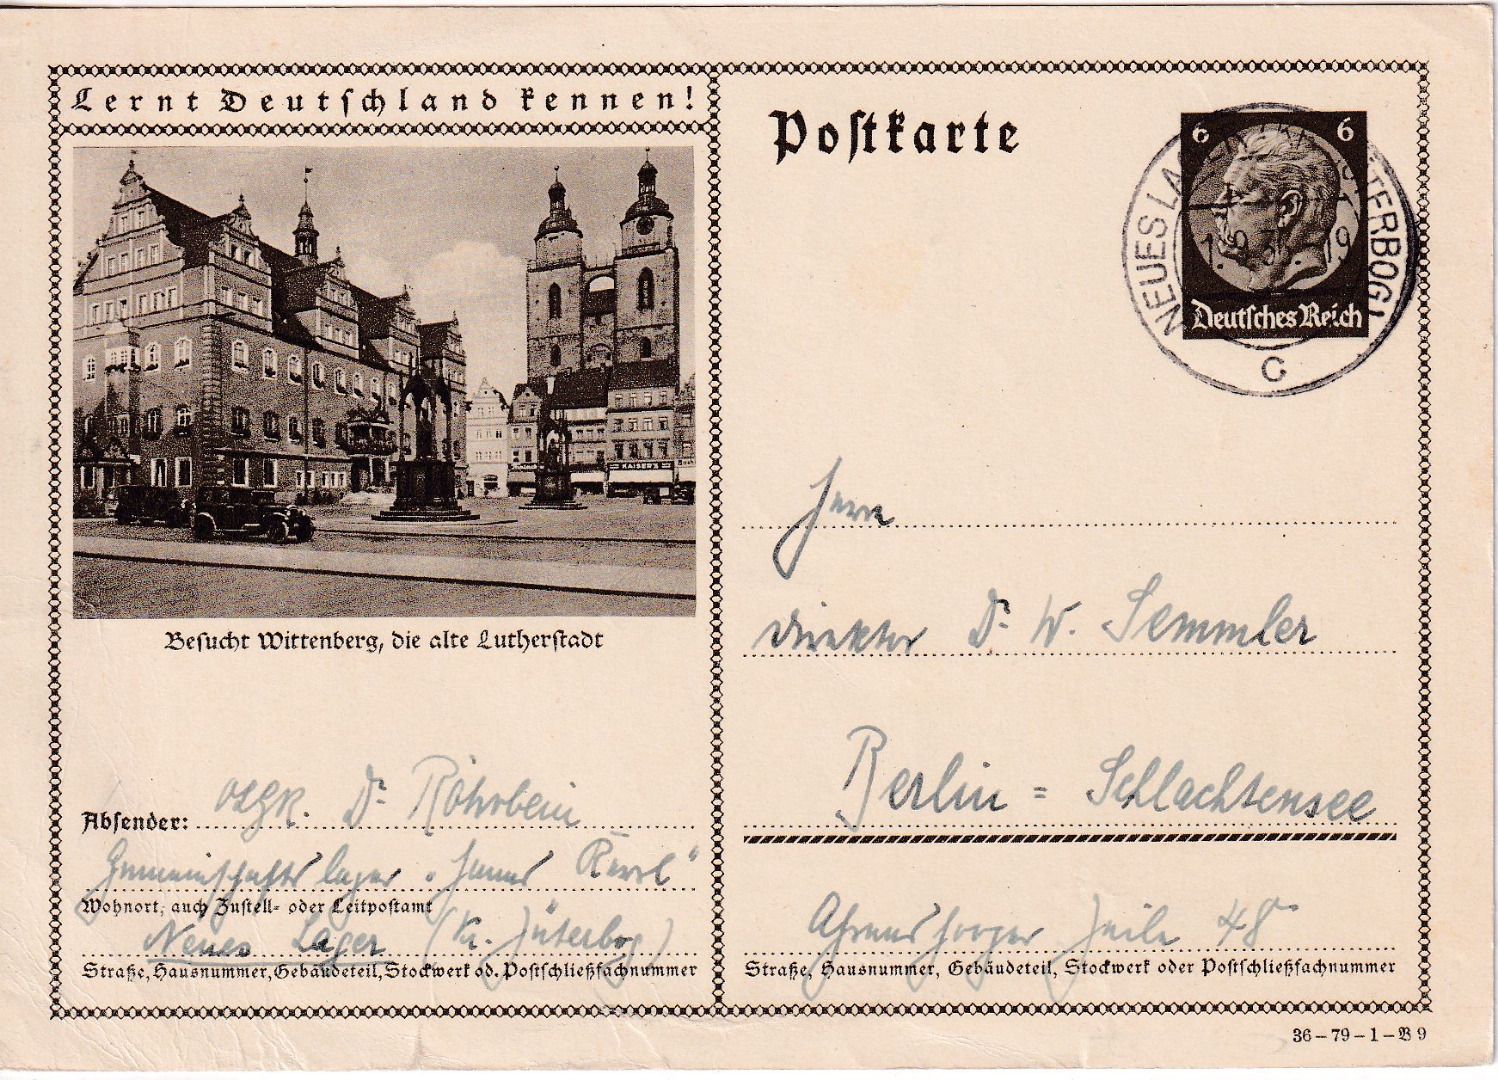 Lernt Deutschland kennen!
KAISER'S
Besucht Wittenberg, die alte Lutherstadt
Absender: OLGR. Dr. Röhrbein
Gemeinschaftslager „Hanns Kerrl“
Wohnort, auch Zustell- oder Leitpostamt
Neues Lager (Kr. Jüterbog)
Straße, Hausnummer, Gebäudeteil, Stockwerk od. Postschließfachnummer
Postkarte
6 6
Deutsches Reich
NEUES LAGER JÜTERBOG
C
Herrn
Direktor Dr. W. Semmler
Berlin = Schlachtensee
Zeile 48
Straße, Hausnummer, Gebäudeteil, Stockwerk oder Postschließfachnummer
36–79–1–B 9